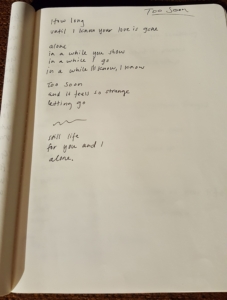 Too Soon
How long
until I learn your love is gone
alone
in a while you show
in a while I go
in a while I'll know, I know
Too Soon
and it feels so strange
letting go
still life
for you and I
alone.